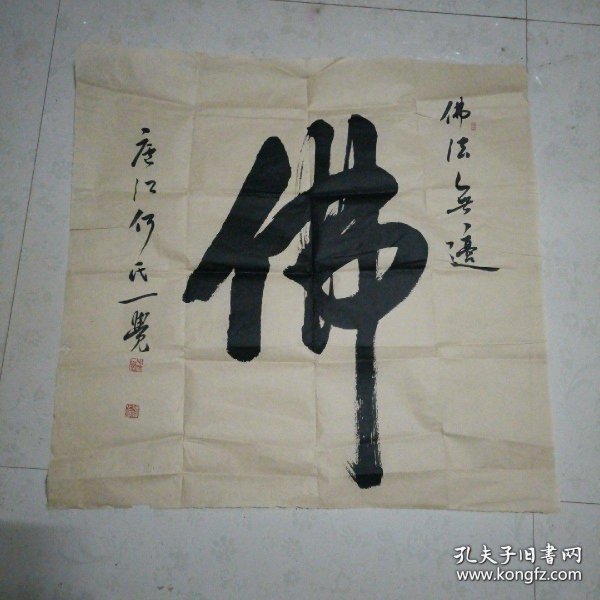 佛法無邊
佛
唐江何氏一覺
孔夫子旧書网
www.kongfz.com